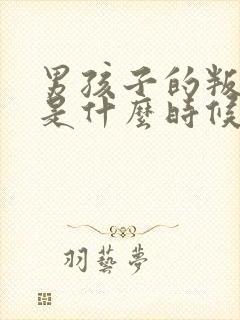 男孩子的叛
是什麼時候
羽藝夢